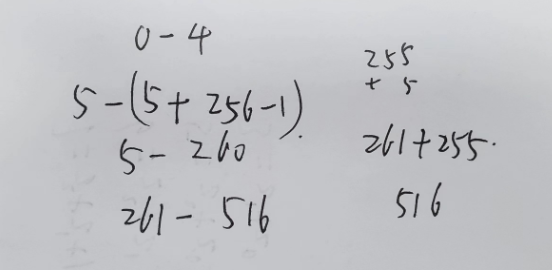 0 - 4
5 - (5 + 256 - 1).
5 - 260
261 - 516
255
+ 5
261 + 255.
516